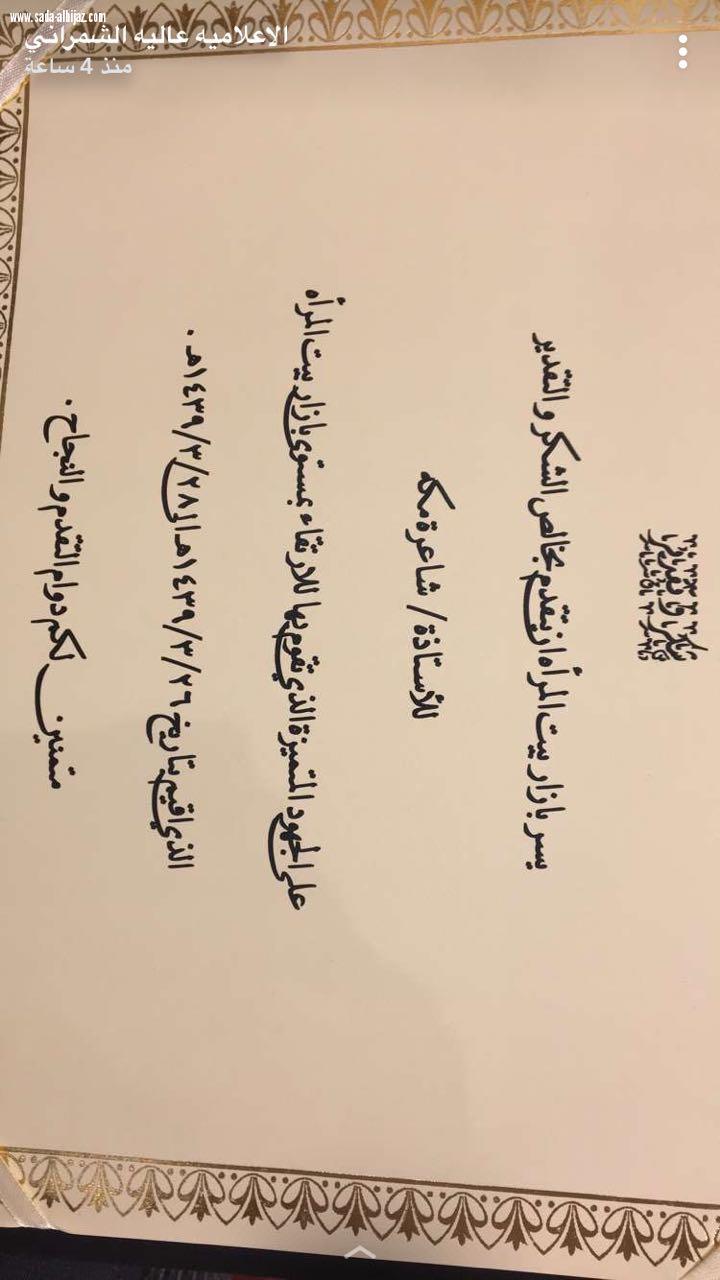 www.sada-alhijaz.com
الاعلاميه عاليه الشمراني
منذ 4 ساعة
شكر و تقدير
يسر بازار بيت المرأه ان يتقدم بخالص الشكر و التقدير
للأستاذة / شاعرة مكه
على الجهود المتميزة الذي تقوم بها للارتقاء بمستوى بازار بيت المرأه
الذي اقيم بتاريخ ١٤٣٩/٣/٢٦هـ الى ١٤٣٩/٣/٢٨هـ .
متمنين لكم دوام التقدم و النجاح .